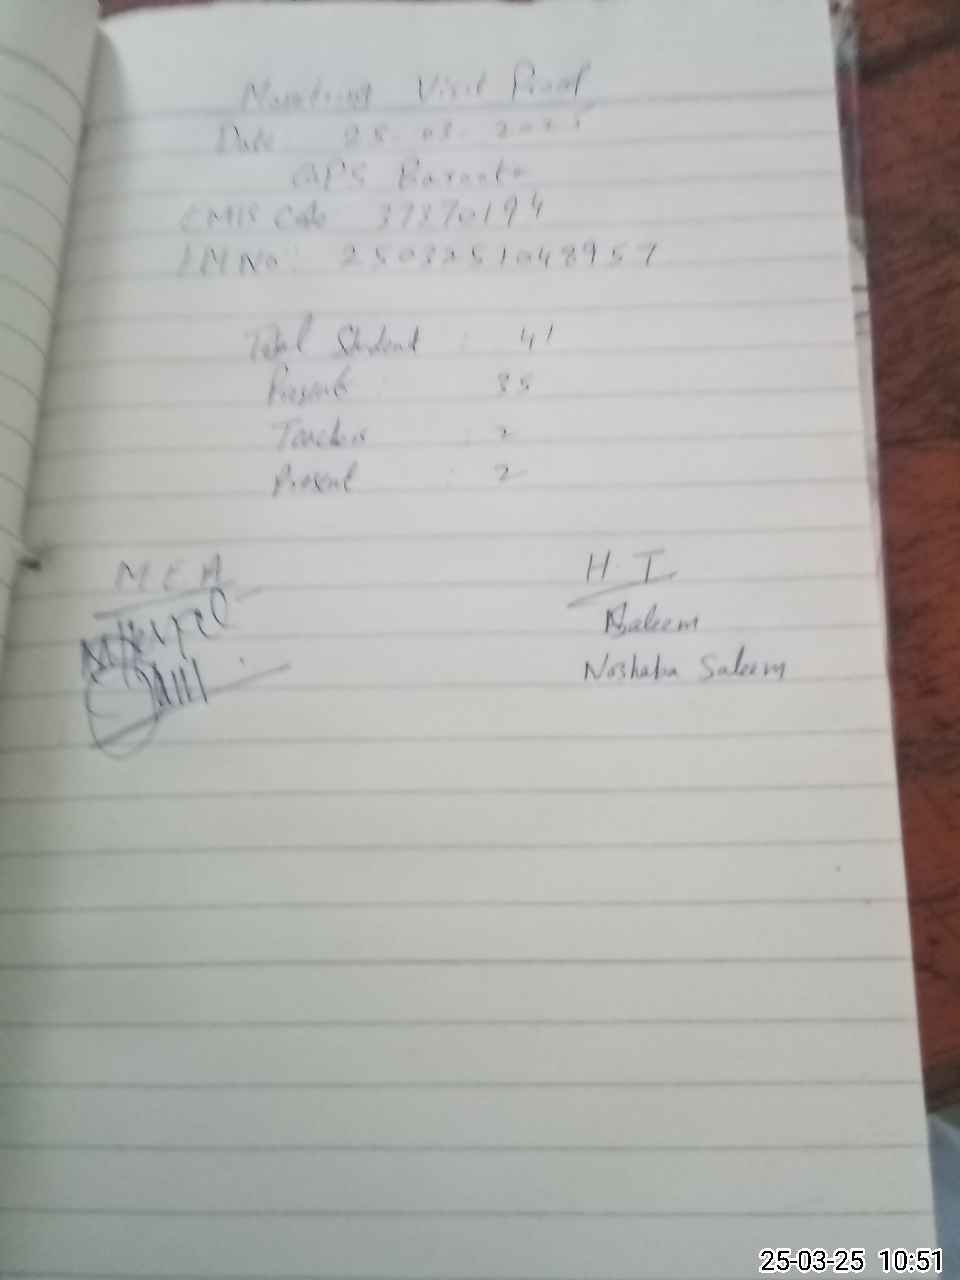 Visit Proof
Date 25-03-2025
GPS
EMIS Code 37370194
LM No: 2503251048957
Total Student : 41
Present : 35
Teachers : 2
Present : 2
MEA
H.T
Saleem
Noshaba Saleem
25-03-25 10:51